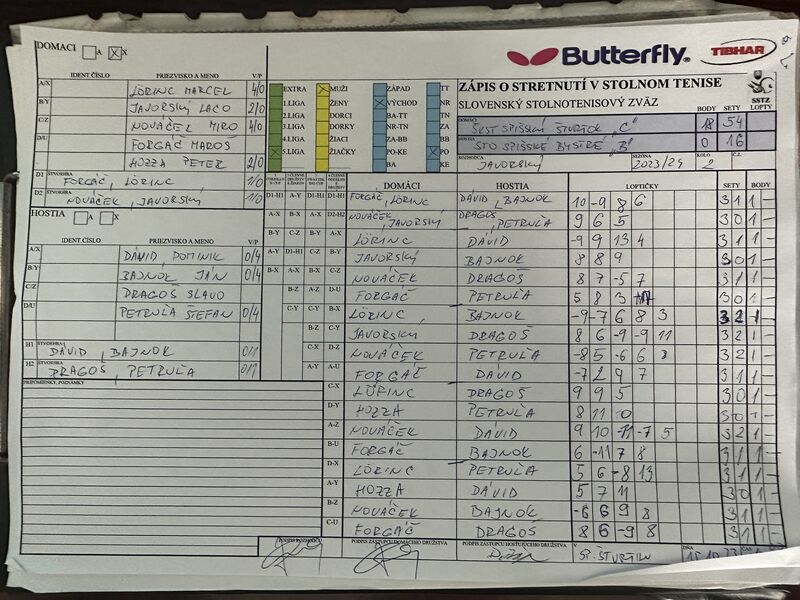 DOMÁCI A X
Butterfly TIBHAR
IDENT.ČÍSLO PRIEZVISKO A MENO V/P
A/X LÖRINC MARCEL 4/0
B/Y JAVORSKÝ LACO 2/0
C/Z NOVÁČEK MIRO 4/0
D/U FORGÁČ MAROŠ
HOZZA PETER 2/0
D1 ŠTVORHRA FORGÁČ, LÖRINC 1/0
D2 ŠTVORHRA NOVÁČEK, JAVORSKÝ 1/0
EXTRA
1.LIGA
2.LIGA
3.LIGA
4.LIGA
5.LIGA
MUŽI
ŽENY
DORCI
DORKY
ŽIACI
ŽIAČKY
ZÁPAD
VÝCHOD
BA-TT
NR-TN
ZA-BB
PO-KE
BA
TT
NR
TN
ZA
BB
PO
KE
ZÁPIS O STRETNUTÍ V STOLNOM TENISE
SLOVENSKÝ STOLNOTENISOVÝ ZVÄZ SSTZ
BODY SETY LOPTY
DOMÁCI ŠKST SPIŠSKÝ ŠTVRTOK "C" 18 54
HOSTIA STO SPIŠSKÉ BYSTRÉ "B" 0 16
ROZHODCA JAVORSKÝ SEZÓNA 2023/24 KOLO 2 Č.Z.
HOSTIA A X
IDENT.ČÍSLO PRIEZVISKO A MENO V/P
A/X DÁVID DOMINIK 0/4
B/Y BAJNOK JÁN 0/4
C/Z DRAGOŠ SLAVO
D/U PETRUĽA ŠTEFAN 0/4
H1 ŠTVORHRA DÁVID, BAJNOK 0/1
H2 ŠTVORHRA DRAGOŠ, PETRUĽA 0/1
PRIPOMIENKY, POZNÁMKY
DOMÁCI HOSTIA LOPTIČKY SETY BODY
D1-H1 FORGÁČ, LÖRINC DÁVID, BAJNOK 10 -9 8 6 3 1 1 -
D2-H2 NOVÁČEK, JAVORSKÝ DRAGOŠ, PETRUĽA 9 6 5 3 0 1 -
LÖRINC DÁVID -9 9 13 4 3 1 1 -
JAVORSKÝ BAJNOK 8 8 9 3 0 1 -
NOVÁČEK DRAGOŠ 8 7 -5 7 3 1 1 -
FORGÁČ PETRUĽA 5 8 3 3 0 1 -
LÖRINC BAJNOK -9 -7 6 8 3 3 2 1 -
JAVORSKÝ DRAGOŠ 8 6 -9 -9 11 3 2 1 -
NOVÁČEK PETRUĽA -8 5 -6 6 3 3 2 1 -
A-U FORGÁČ DÁVID -7 2 9 7 3 1 1 -
C-X LÖRINC DRAGOŠ 9 9 5 3 0 1 -
D-Y HOZZA PETRUĽA 8 11 10 3 0 1 -
A-Z NOVÁČEK DÁVID 9 10 -11 -7 5 3 2 1 -
B-U FORGÁČ BAJNOK 6 -11 7 8 3 1 1 -
D-X LÖRINC PETRUĽA 5 6 -8 13 3 1 1 -
A-Y HOZZA DÁVID 5 7 11 3 0 1 -
B-Z NOVÁČEK BAJNOK -6 6 9 8 3 1 1 -
C-U FORGÁČ DRAGOŠ 8 6 -9 8 3 1 1 -
PODPIS ROZHODCU PODPIS ZÁSTUPCU DOMÁCEHO DRUŽSTVA PODPIS ZÁSTUPCU HOSŤUJÚCEHO DRUŽSTVA SP. ŠTVRTOK DŇA 15.10.23